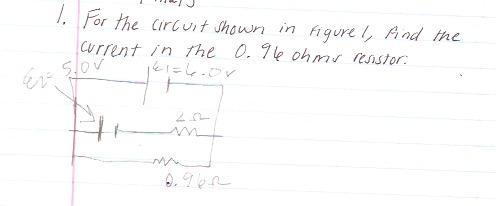 1. For the circuit shown in figure 1, find the
current in the 0.96 ohms resistor.
5.0V
ε1=6.0V
2Ω
0.96Ω